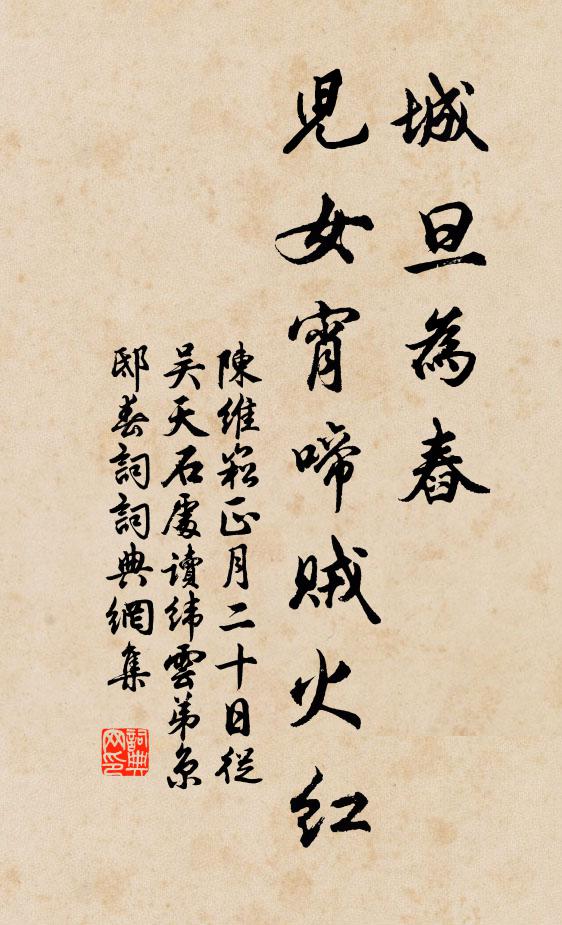 城旦為舂
兒女宵啼賊火紅
陳維崧正月二十日從
吴天石處讀緯雲弟京
邸春詞詞典網集
詞典
网印